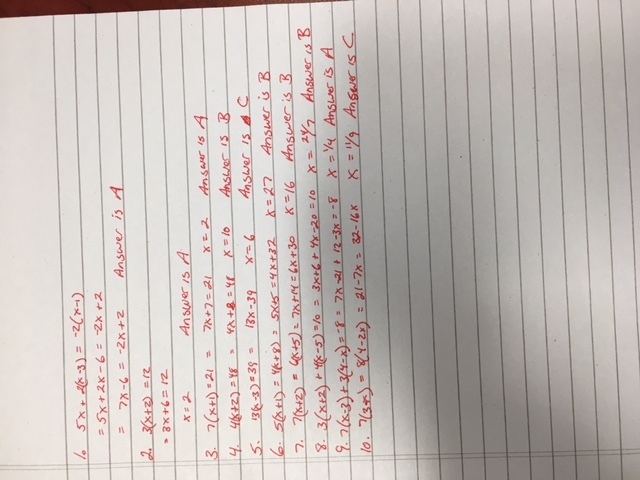 1. 5x + 2(x-3) = -2(x-1)
= 5x + 2x - 6 = -2x + 2
= 7x - 6 = -2x + 2 Answer is A
2. 3(x+2) = 12
= 3x + 6 = 12
x = 2 Answer is A
3. 7(x+1) = 21 = 7x + 7 = 21 x = 2 Answer is A
4. 4(x+2) = 48 = 4x + 8 = 48 x = 10 Answer is B
5. 13(x-3) = 39 = 13x - 39 x = 6 Answer is C
6. 5(x+1) = 4(x+8) = 5x+5 = 4x+32 x = 27 Answer is B
7. 7(x+2) = 6(x+5) = 7x+14 = 6x+30 x = 16 Answer is B
8. 3(x+2) + 4(x-5) = 10 = 3x+6 + 4x-20 = 10 x = 24/7 Answer is B
9. 7(x-3) + 3(4-x) = -8 = 7x-21 + 12-3x = -8 x = 1/4 Answer is A
10. 7(3-x) = 8(4-2x) = 21-7x = 32-16x x = 11/9 Answer is C